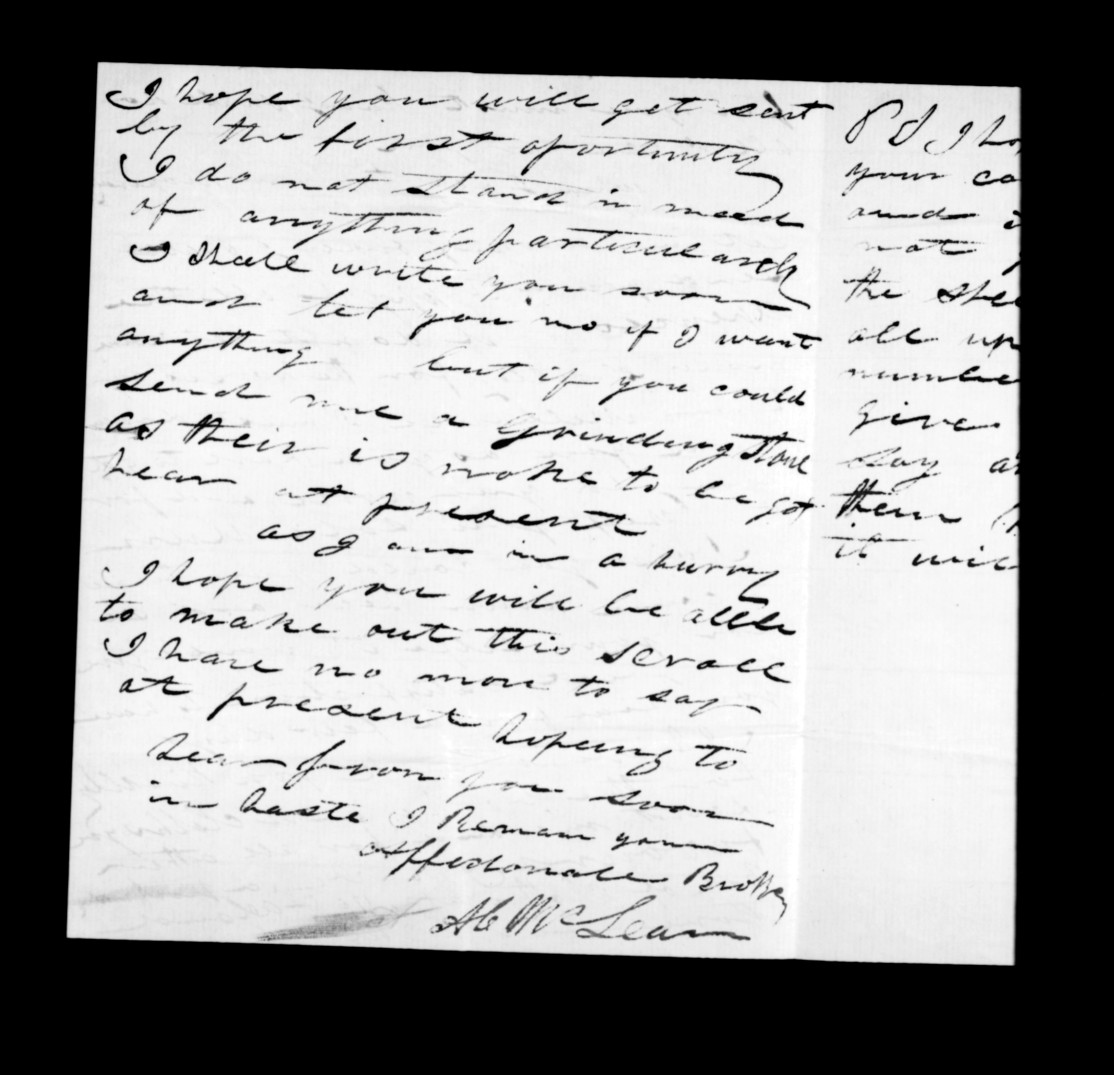 I hope you will get sent
by the first oportunity
I do not stand in need
of anything particularly
I Shall write you soon
and let you no if I want
anything but if you could
send me a Grinding Stone
as their is noke to be got
hear at present
as I am in a hurry
I hope you will be able
to make out this scroll
I have no more to say
at present hopeing to
hear from you soon
in haste I Remain your
Affectonate Brother
McLean
P S I ho
your co
and
not
the shee
all up
numbe
give
say an
them
it wil